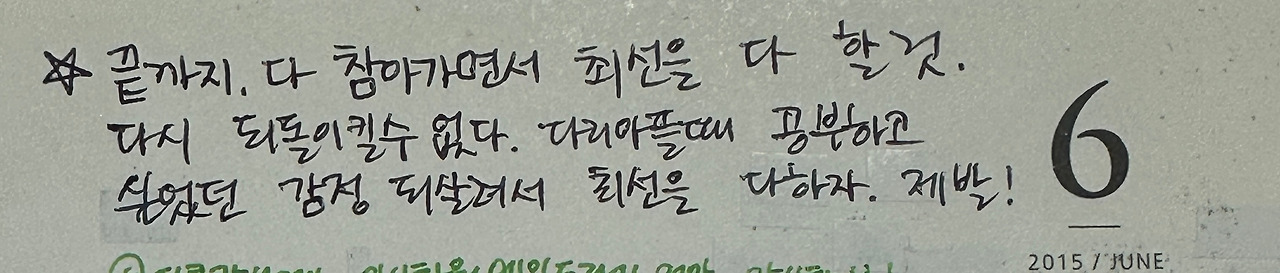 ☆ 끝까지. 다 참아가면서 최선을 다 할 것.
다시 되돌이킬수 없다. 다리아플때 공부하고
싶었던 감정 되살려서 최선을 다하자. 제발!
6
2015 / JUNE